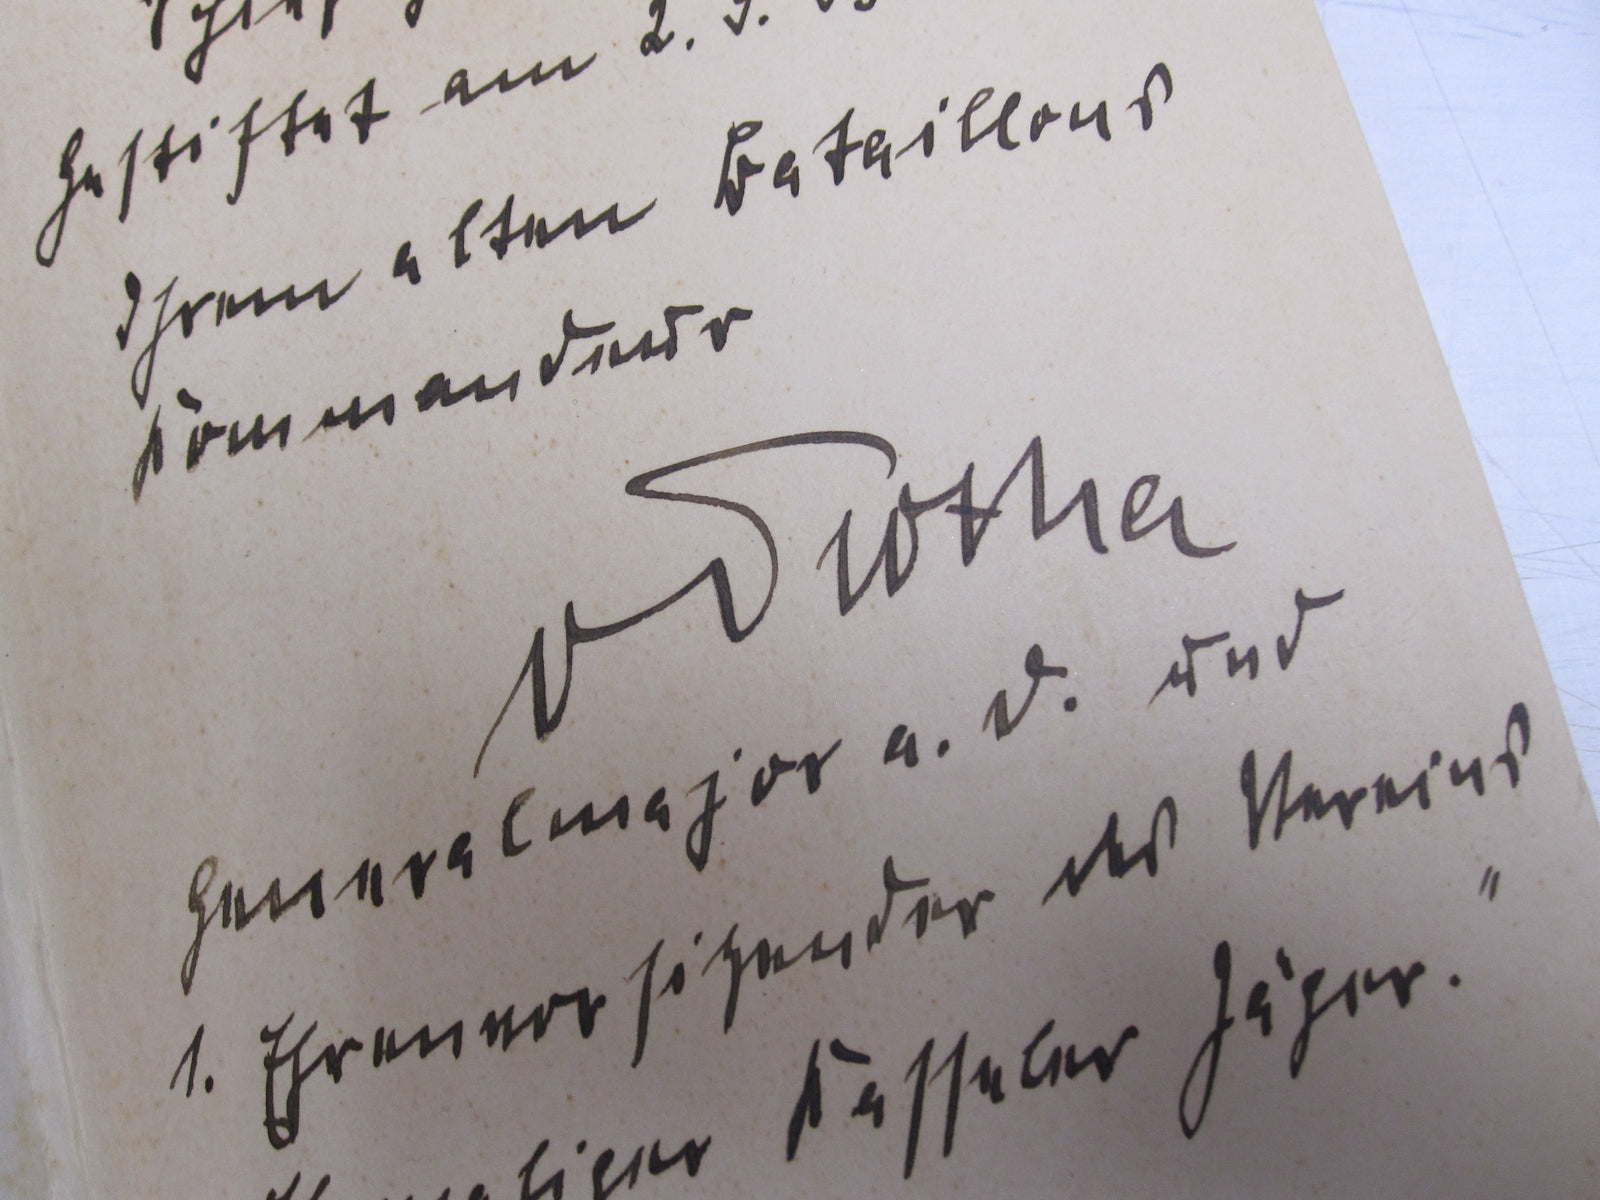 Gestiftet am 2. 5.
Ihrem alten Bataillons
Kommandeur
v Trotha
Generalmajor a. D. und
1. Ehrenvorsitzender des Vereins
"
Ehemaliger Kasseler Jäger.